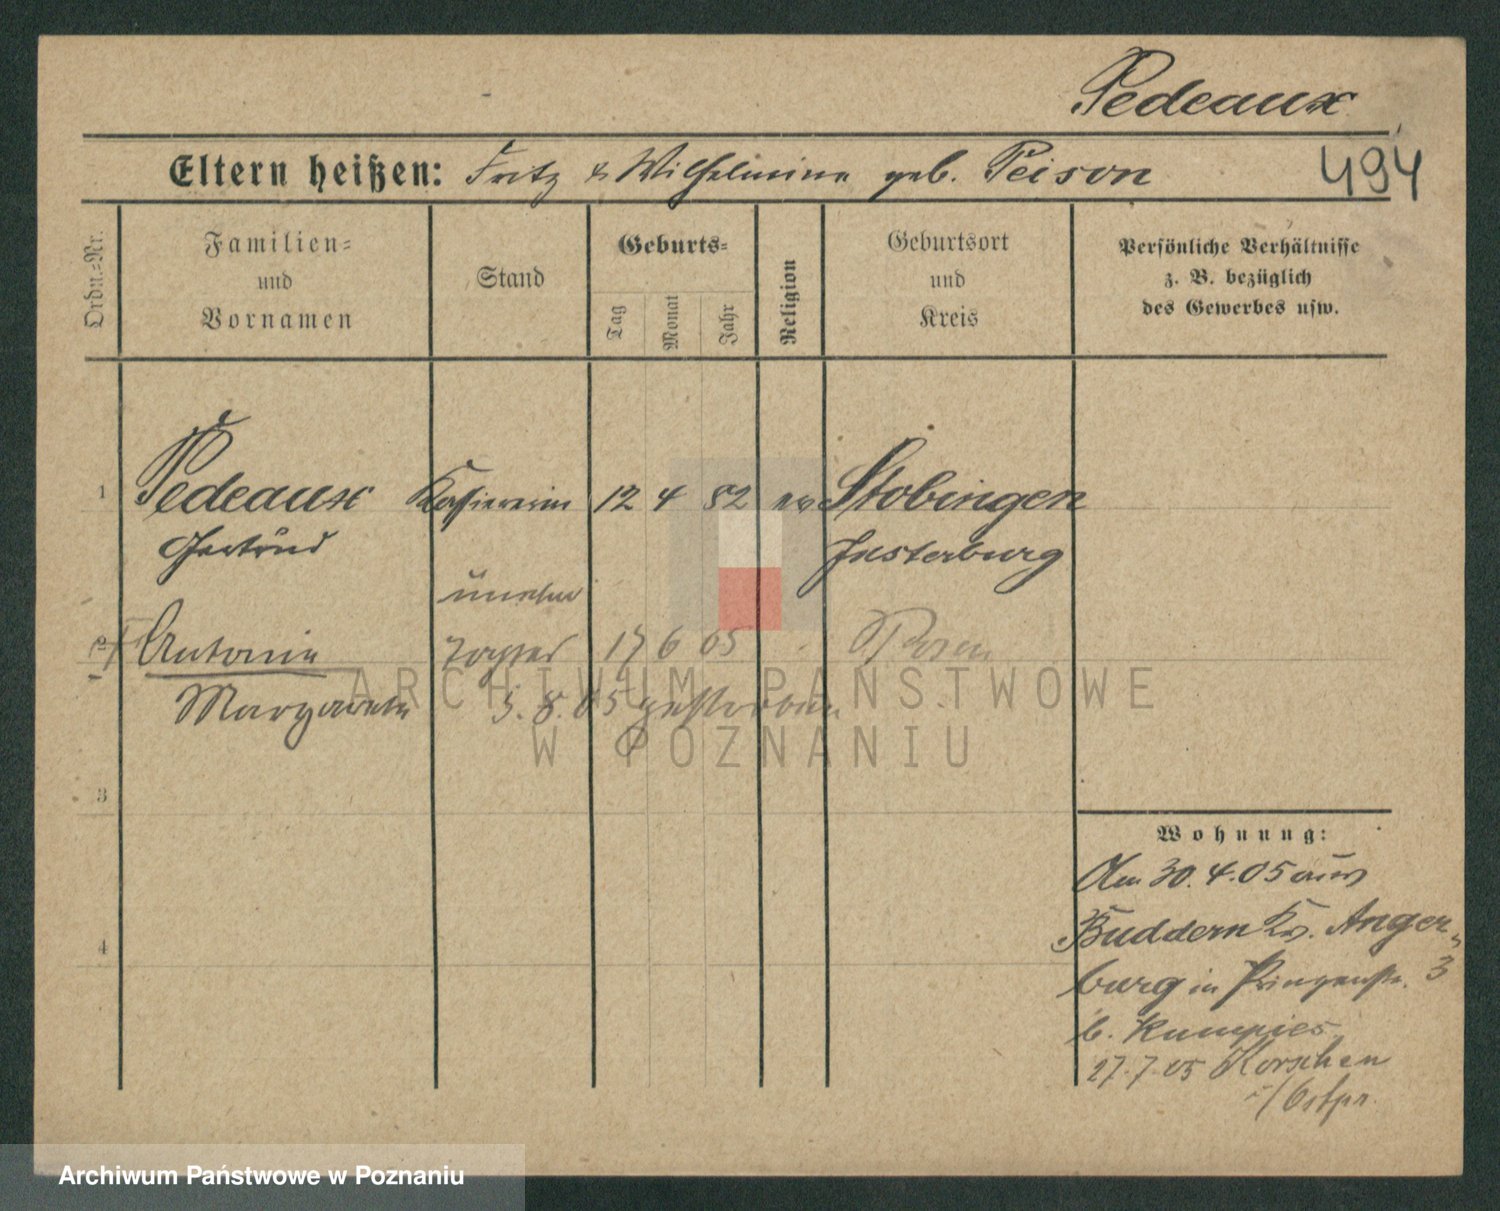 Pedeaux
Eltern heißen: Fritz & Wilhelmine geb. Peison
494
Ordn.=Nr.
Familien=
und
Vornamen
Stand
Geburts=
Tag
Monat
Jahr
Religion
Geburtsort
und
Kreis
Persönliche Verhältnisse
z. B. bezüglich
des Gewerbes usw.
1 Pedeaux Kassiererin 12 4 82 ev Stobingen
Gertrud Insterburg
unehel
2 Antonie Tochter 17 6 05 Posen
Margarete 3. 8. 05 gestorben
3
4
Wohnung:
Am 30. 4. 05 aus
Buddern Kr. Anger-
burg in Prinzenstr. 3
b. Kumpies
27. 7. 05 Korschen
i/Ostpr.
ARCHIWUM PAŃSTWOWE
W POZNANIU
Archiwum Państwowe w Poznaniu